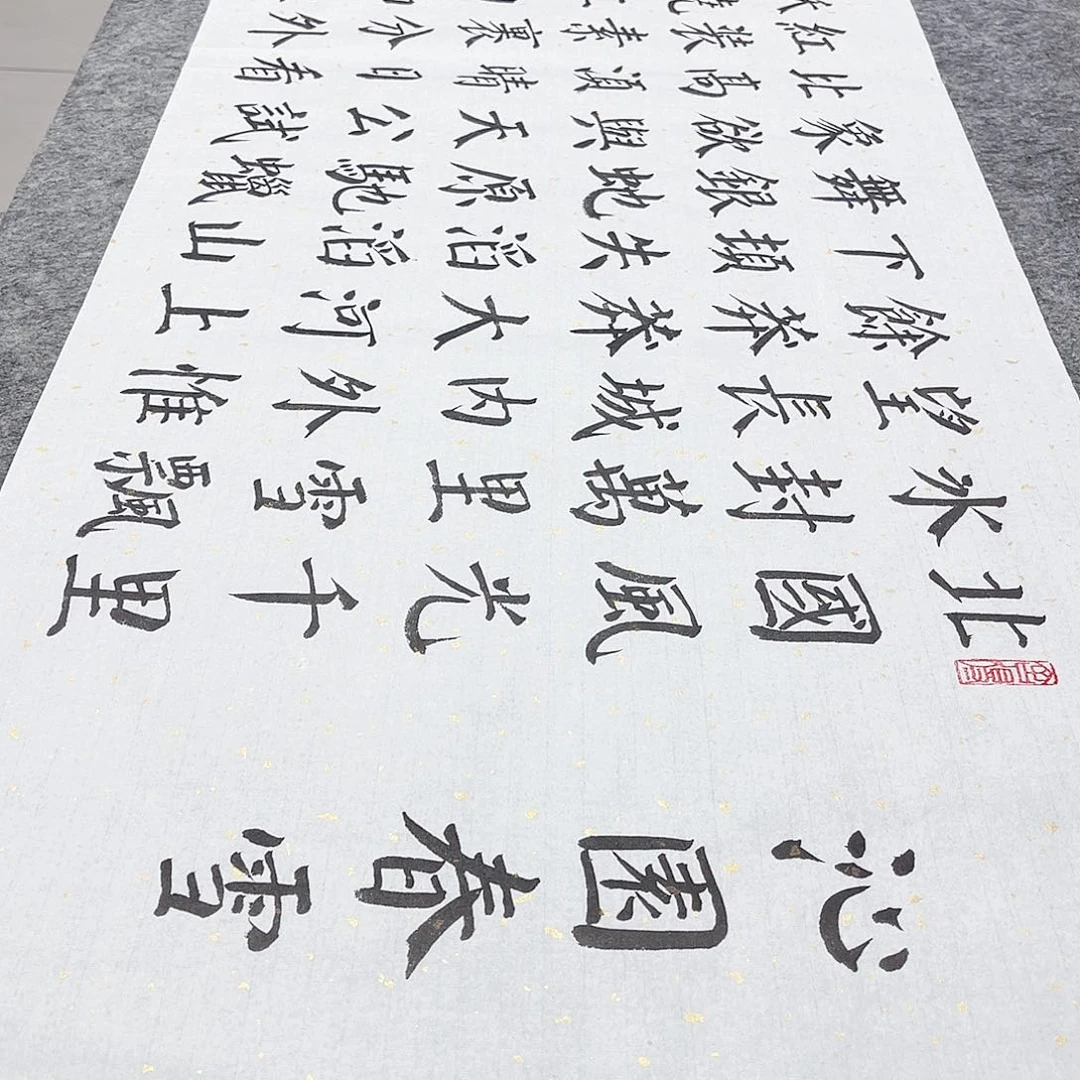 沁園春雪
北國風光千里
冰封萬里雪飄
望長城内外惟
餘莽莽大河上
下頓失滔滔山
舞銀蛇原馳蠟
象欲與天公試
比高須晴日看
紅裝素裹分外